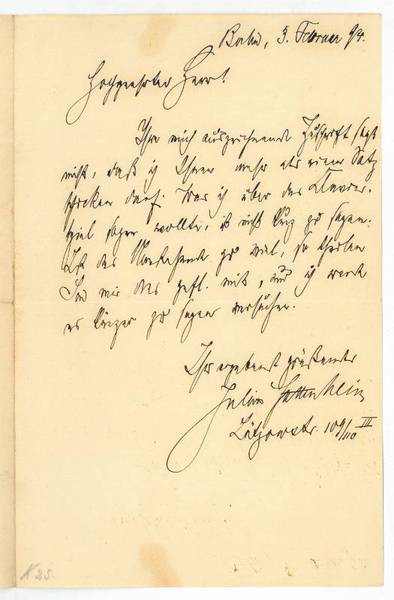 Berlin, 3. Februar 94.
Hochgeehrter Herr!
Ihre mich auszeichnende Zuschrift sagt
nicht, daß ich Ihnen mehr als einen Satz
schicken darf. Was ich über das Klavier-
spiel sagen wollte, ist nicht kurz zu sagen.
Ist das Vorstehende zu viel, so theilen
Sie mir das gefl. mit, und ich werde
es kürzer zu sagen versuchen.
Ihr ergebenst grüßender
Julius Stettenheim
Lützowstr. 109/110 III
N 25.